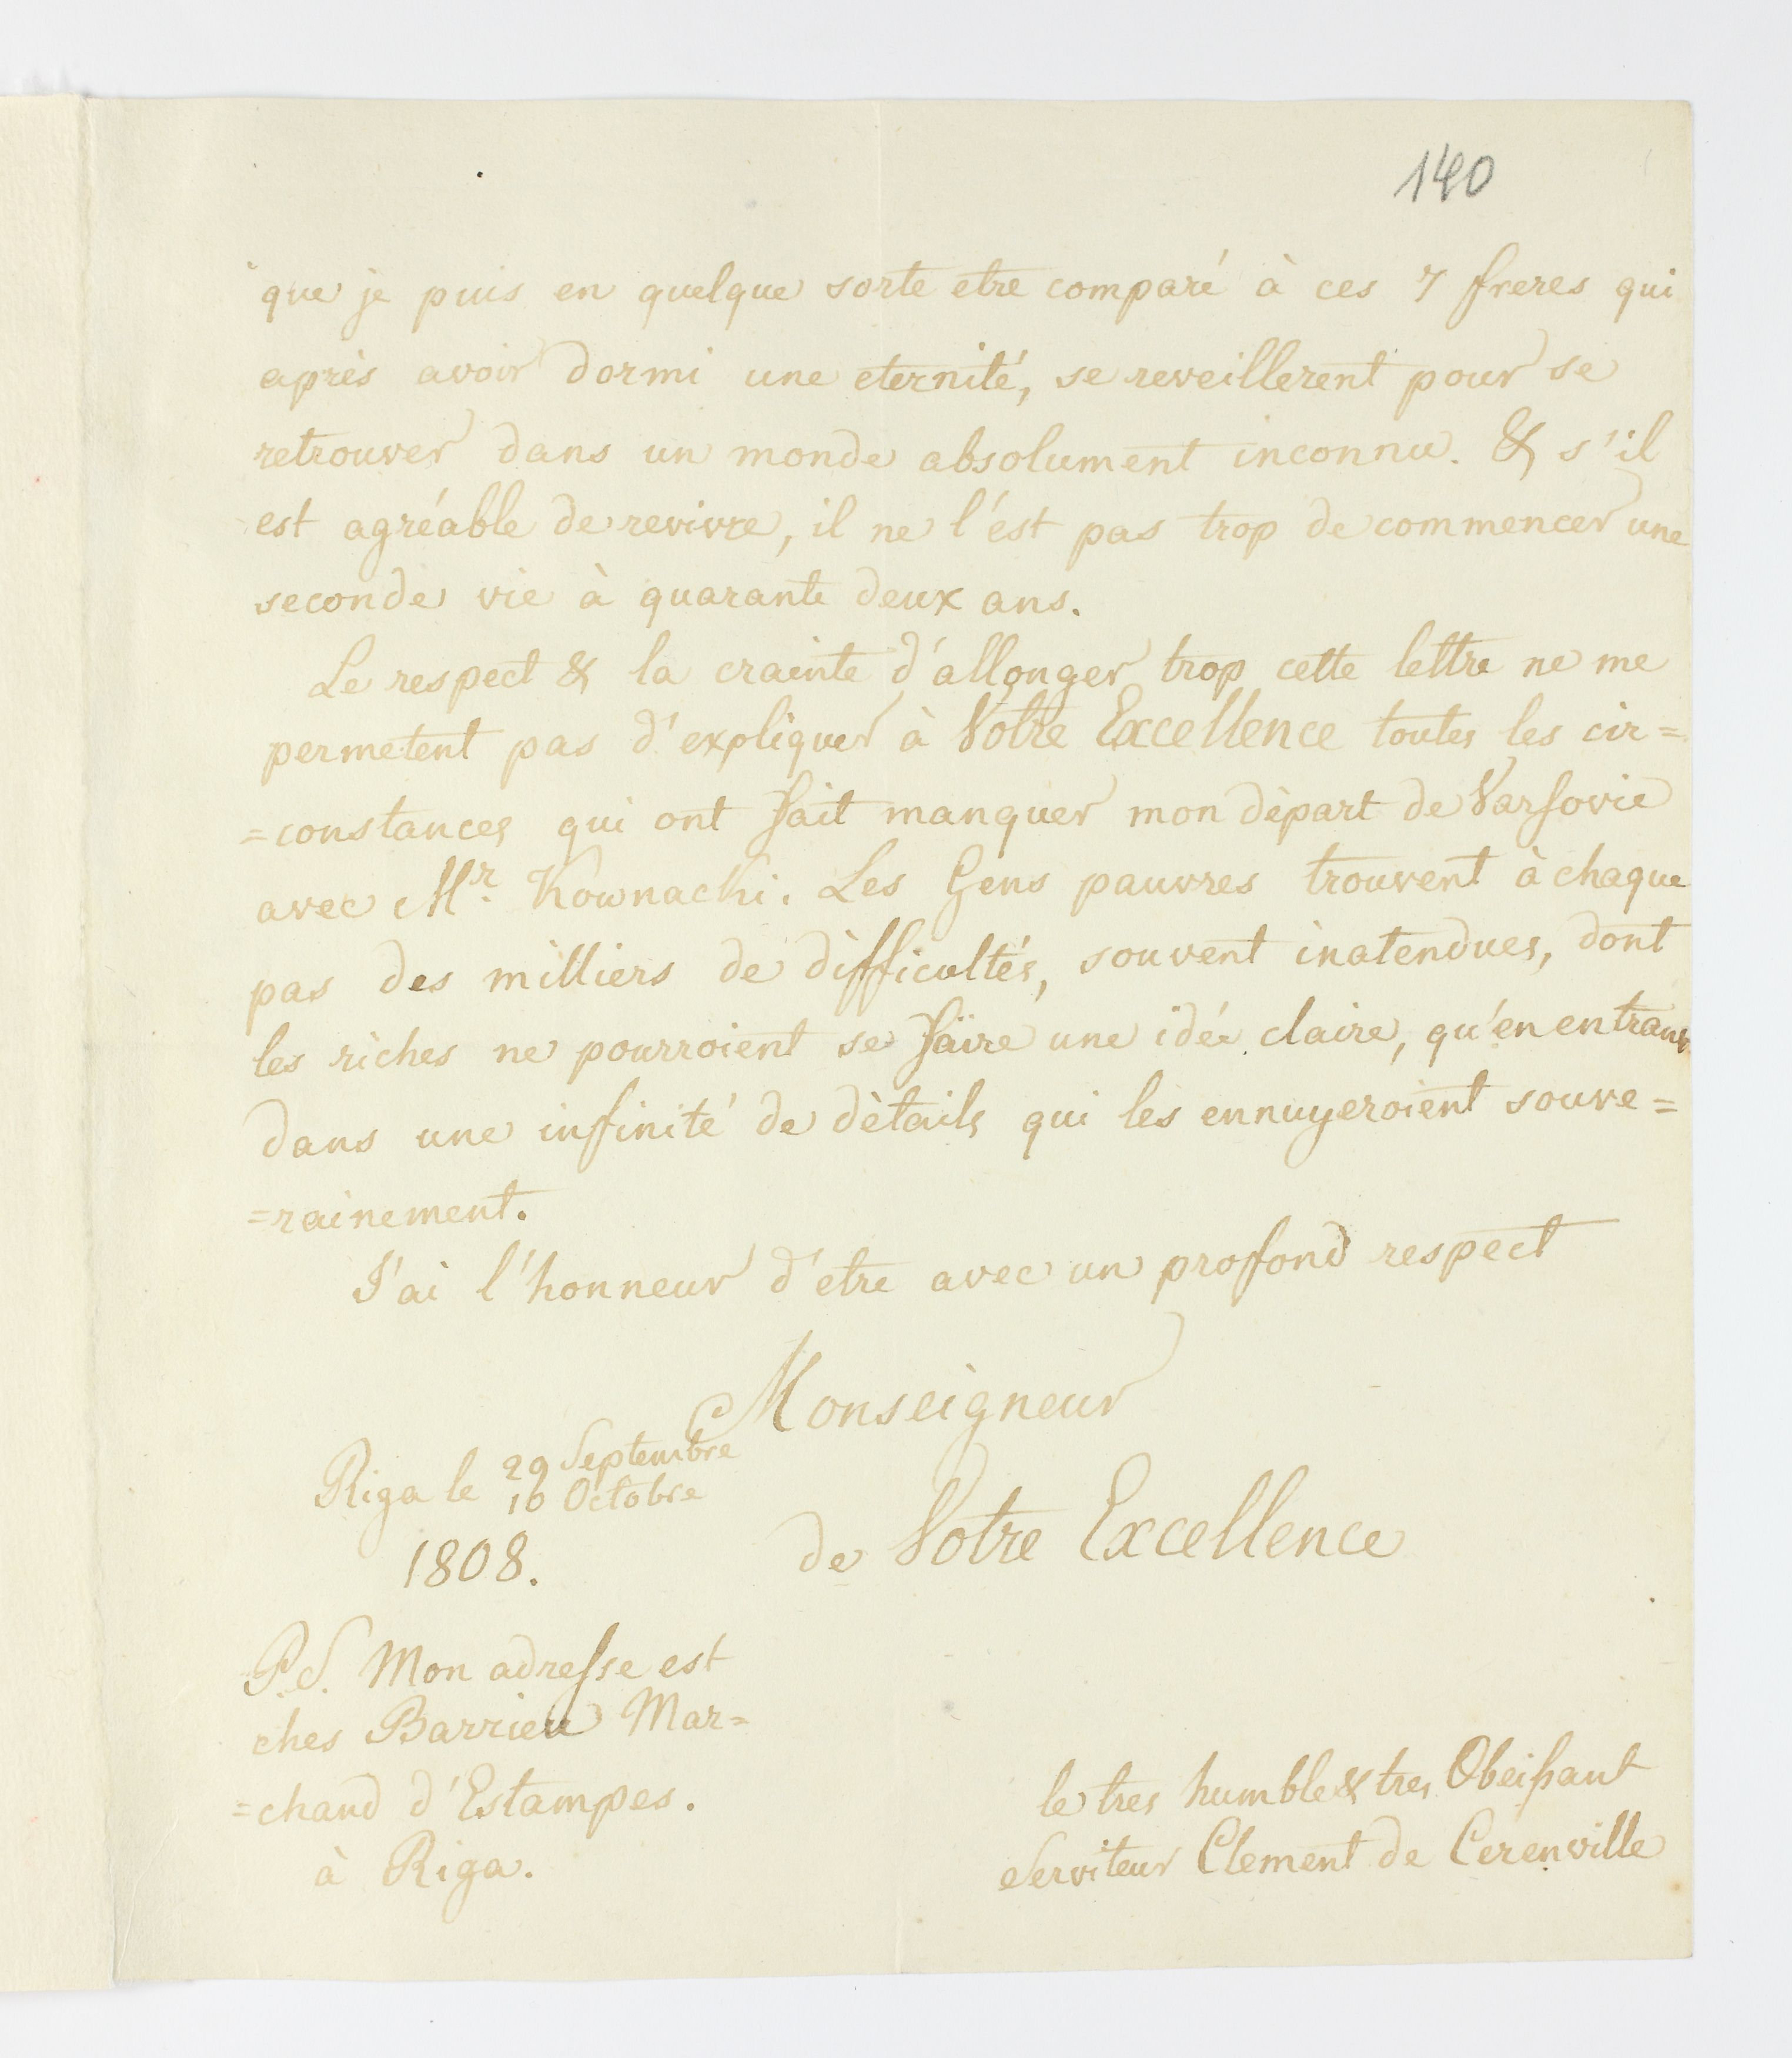 140
que je puis en quelque sorte etre comparé à ces 7 freres qui
après avoir dormi une eternité, se reveillerent pour se
retrouver dans un monde absolument inconnu. & s'il
est agréable de revivre, il ne l'est pas trop de commencer une
seconde vie à quarante deux ans.
Le respect & la crainte d'allonger trop cette lettre ne me
permetent pas d'expliquer à Votre Excellence toutes les cir=
=constances qui ont fait manquer mon dèpart de Varsovie
avec Mr. Kownacki. Les Gens pauvres trouvent à chaque
pas des milliers de difficultés, souvent inatendues, dont
les riches ne pourroient se faire une idée claire, qu'en entrant
dans une infinité de dètails qui les ennuyeroient souve=
=rainement.
J'ai l'honneur d'etre avec un profond respect
Monseigneur
Riga le 29 Septembre
10 Octobre
1808.
de Votre Excellence
P.S. Mon adresse est
ches Barrieu Mar=
=chand d'Estampes.
à Riga.
le tres humble & tres Obeissant
Serviteur Clement de Cerenville